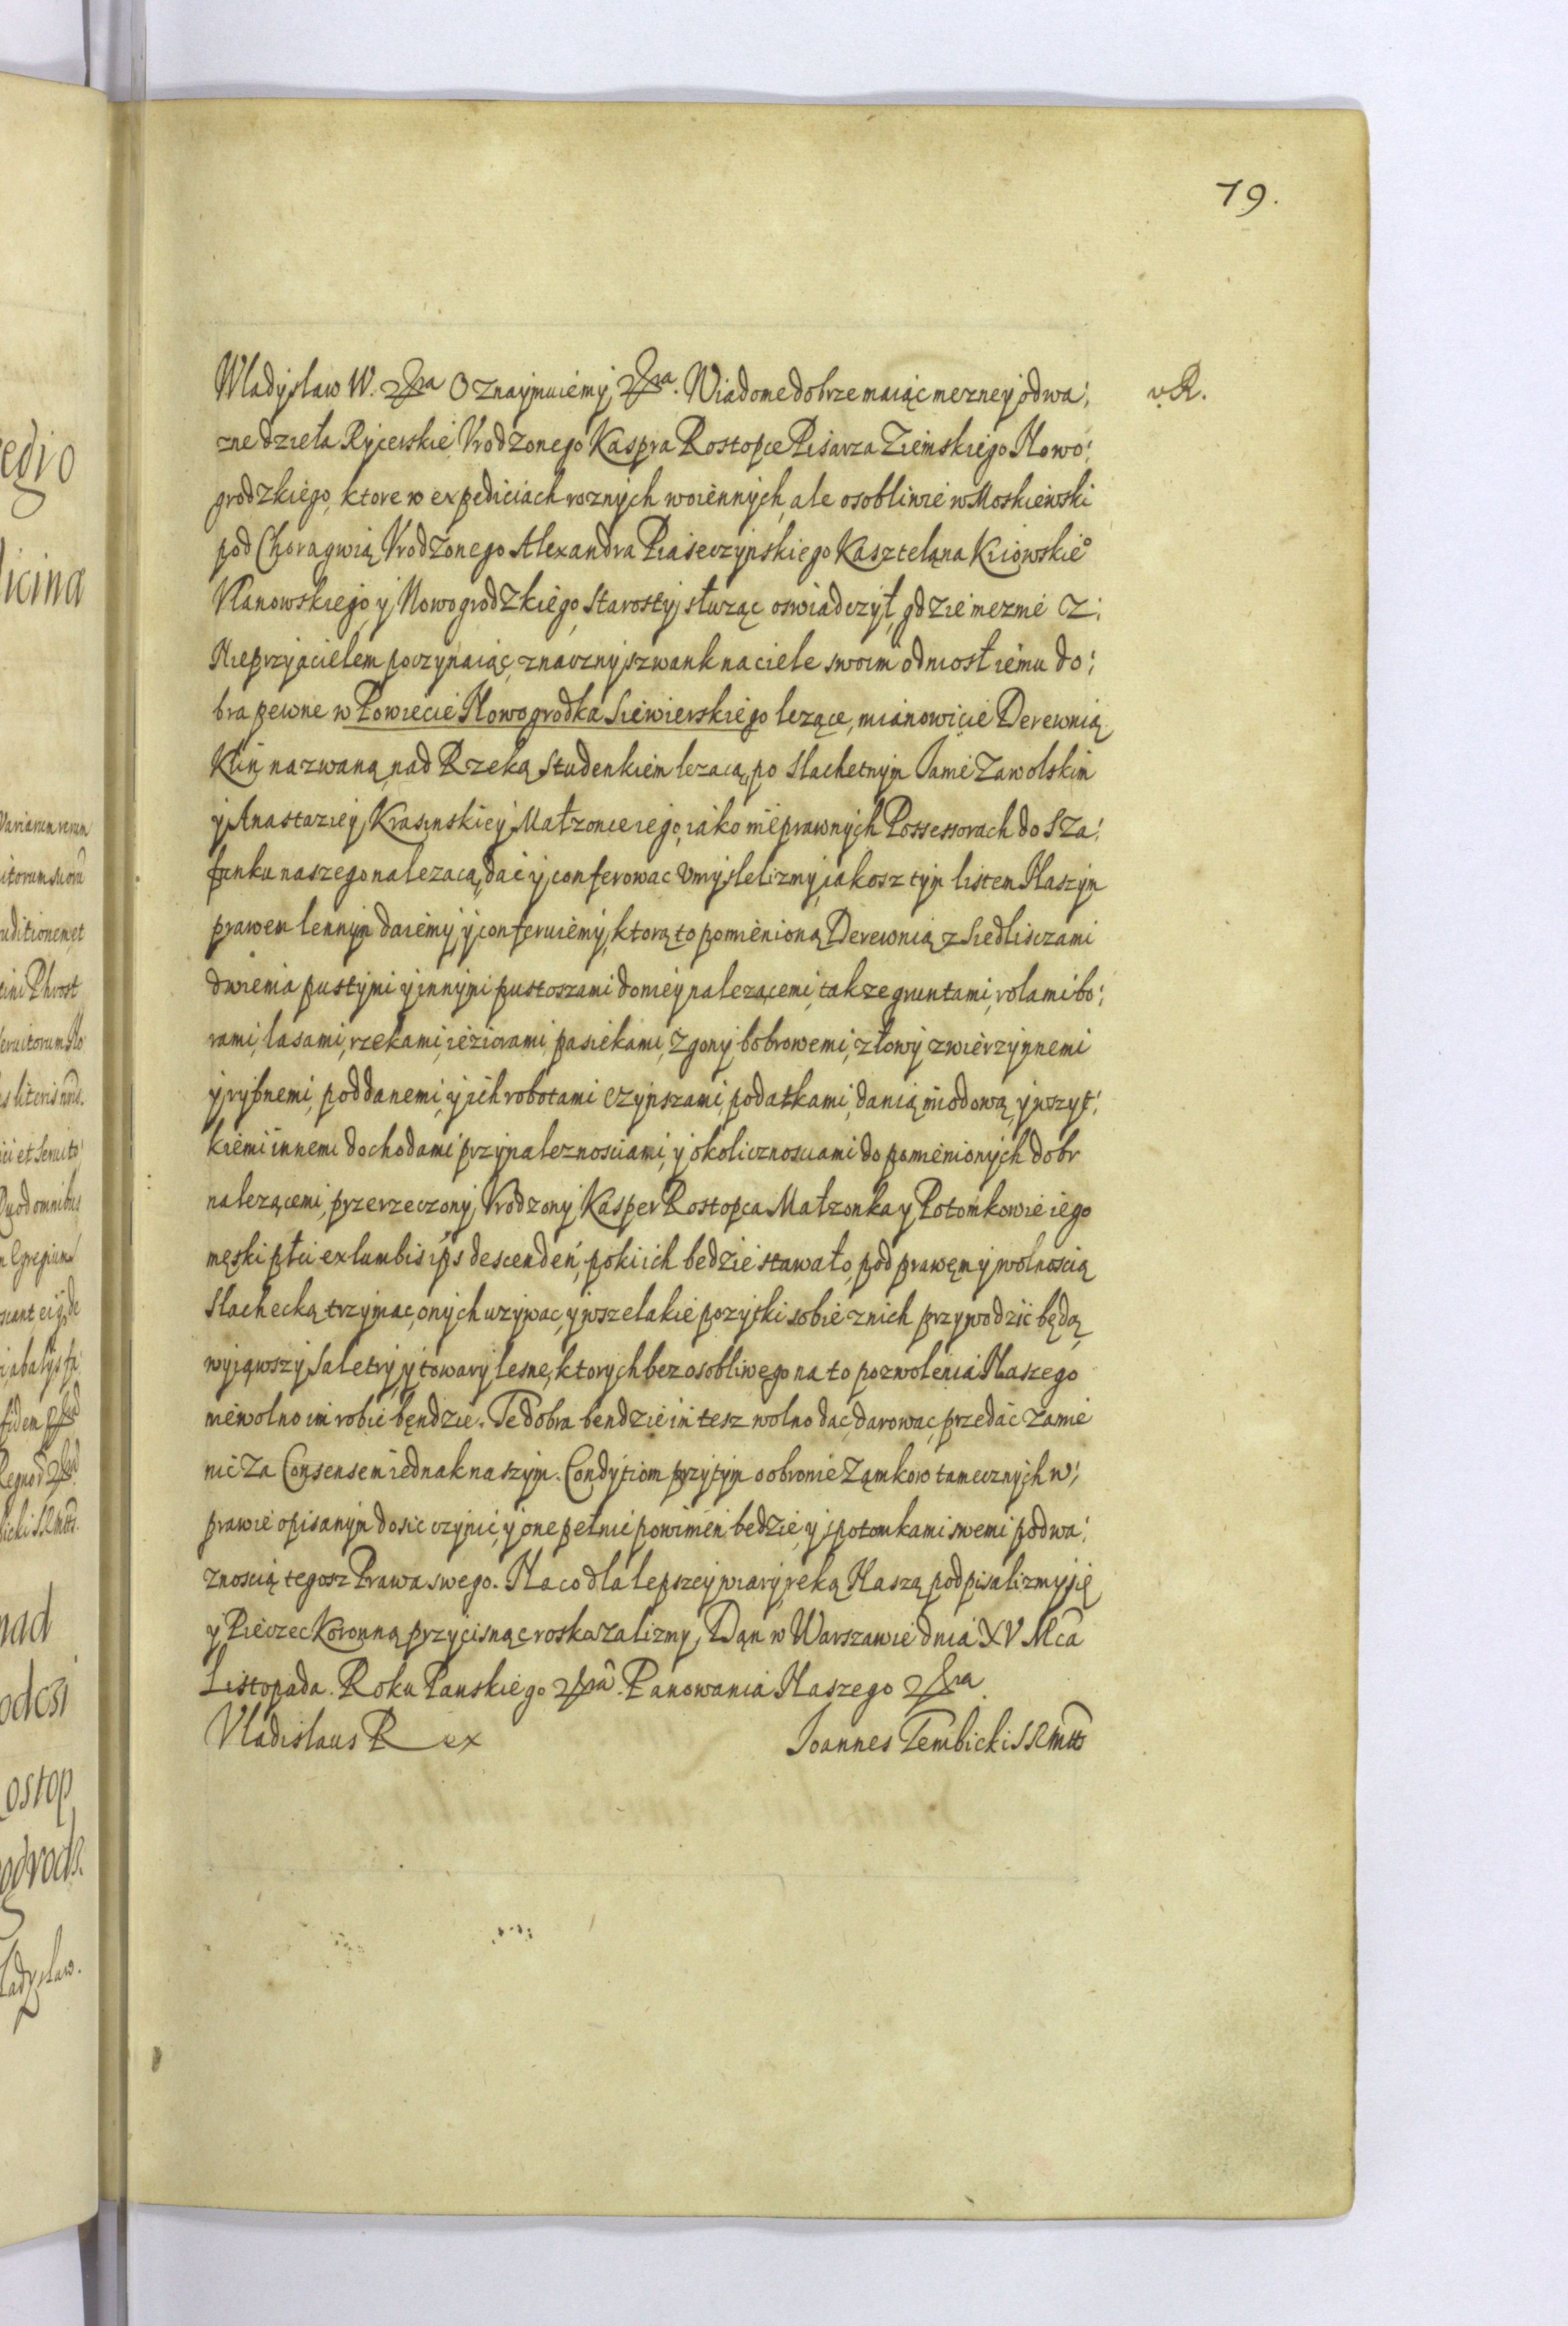 79.
Wladysław W. &ra Oznaymuiemy &ra. Wiadome dobrze maiąc mezne y odwa:
v. R.
zne dzieła Rycerskie Vrodzonego Kaspra Rostopce Pisarza Ziemskiego Nowo:
grodzkiego, ktore w expediciach roznych woiennych, ale osobliwie w Moskiewski
pod Choragwią Vrodzonego Alexandra Piaseczynskiego Kaszteląna Kiiowskieo
Vlanowskiego y Nowogrodzkiego Starosty słuząc oswiadczył, gdzie meznie Z:
Nieprzyacielem poczynaiąc, znaczny szwank na ciele swoim odniosł iemu do:
bra pewne w Powiecie Nowogrodka Siewierskiego lezące, mianowicie Derewnią
Klin nazwaną nad Rzeką Studenkiem lezacą, po Slachetnym Janie Zawolskim
y Anastaziey Krasinskiey Małzonce iego, iako nieprawnych Possessorach do Sza:
funku naszego nalezacą, dac y conferowac Vmyslelizmy, iakosz tym listem Naszym
prawem lennym daiemy y conferuiemy, ktorą to pomienioną Derewnią z Siedliszczami
dwiema pustymi y innymi pustoszami do niey nalezącemi, takze gruntami, rolami bo:
rami, lasami, rzekami, ieziorami, pasiekami, Zgony bobrowemi, złowy zwierzynnemi
y rybnemi, poddanemi, y ich robotami czynszami, podatkami, danią miodową y wszyt:
kiemi innemi dochodami przynaleznosciami, y okolicznosciami do pomienionych dobr
nalezącemi, przerzeczony Vrodzony Kasper Rostopca Małzonka y Potomkowie iego
męski płci ex lumbis ips descenden, poki ich bedzie stawało, pod prawęm y wolnoscią
Slachecką trzymac, onych uzywac, y wszelakie pozytki sobie z nich przywodzic będą
wyiąwszy Saletry, y towary lesne, ktorych bez osobliwego na to pozwolenia Naszego
nie wolno im robic będzie. Te dobra bendzie im tesz wolno dac, darowac, przedac zamie
nic Za Consensem iednak naszym. Condytiom przytym o obronie Zamkow tamecznych w:
prawie opisanym dosic czynic, y one pełnic powinien bedzie, y z potomkami swemi pod wa:
znoscią tegosz Prawa swego. Na co dla lepszey wiary, ręką Naszą podpisalizmy się
y Pieczec Koronną przycisnąc roskazalizmy, Dąn w Warszawie dnia XV Mca
Listopada. Roku Panskiego &ra. Panowania Naszego &ra.
Vladislaus Rex
Joannes Gembicki S R Mttis